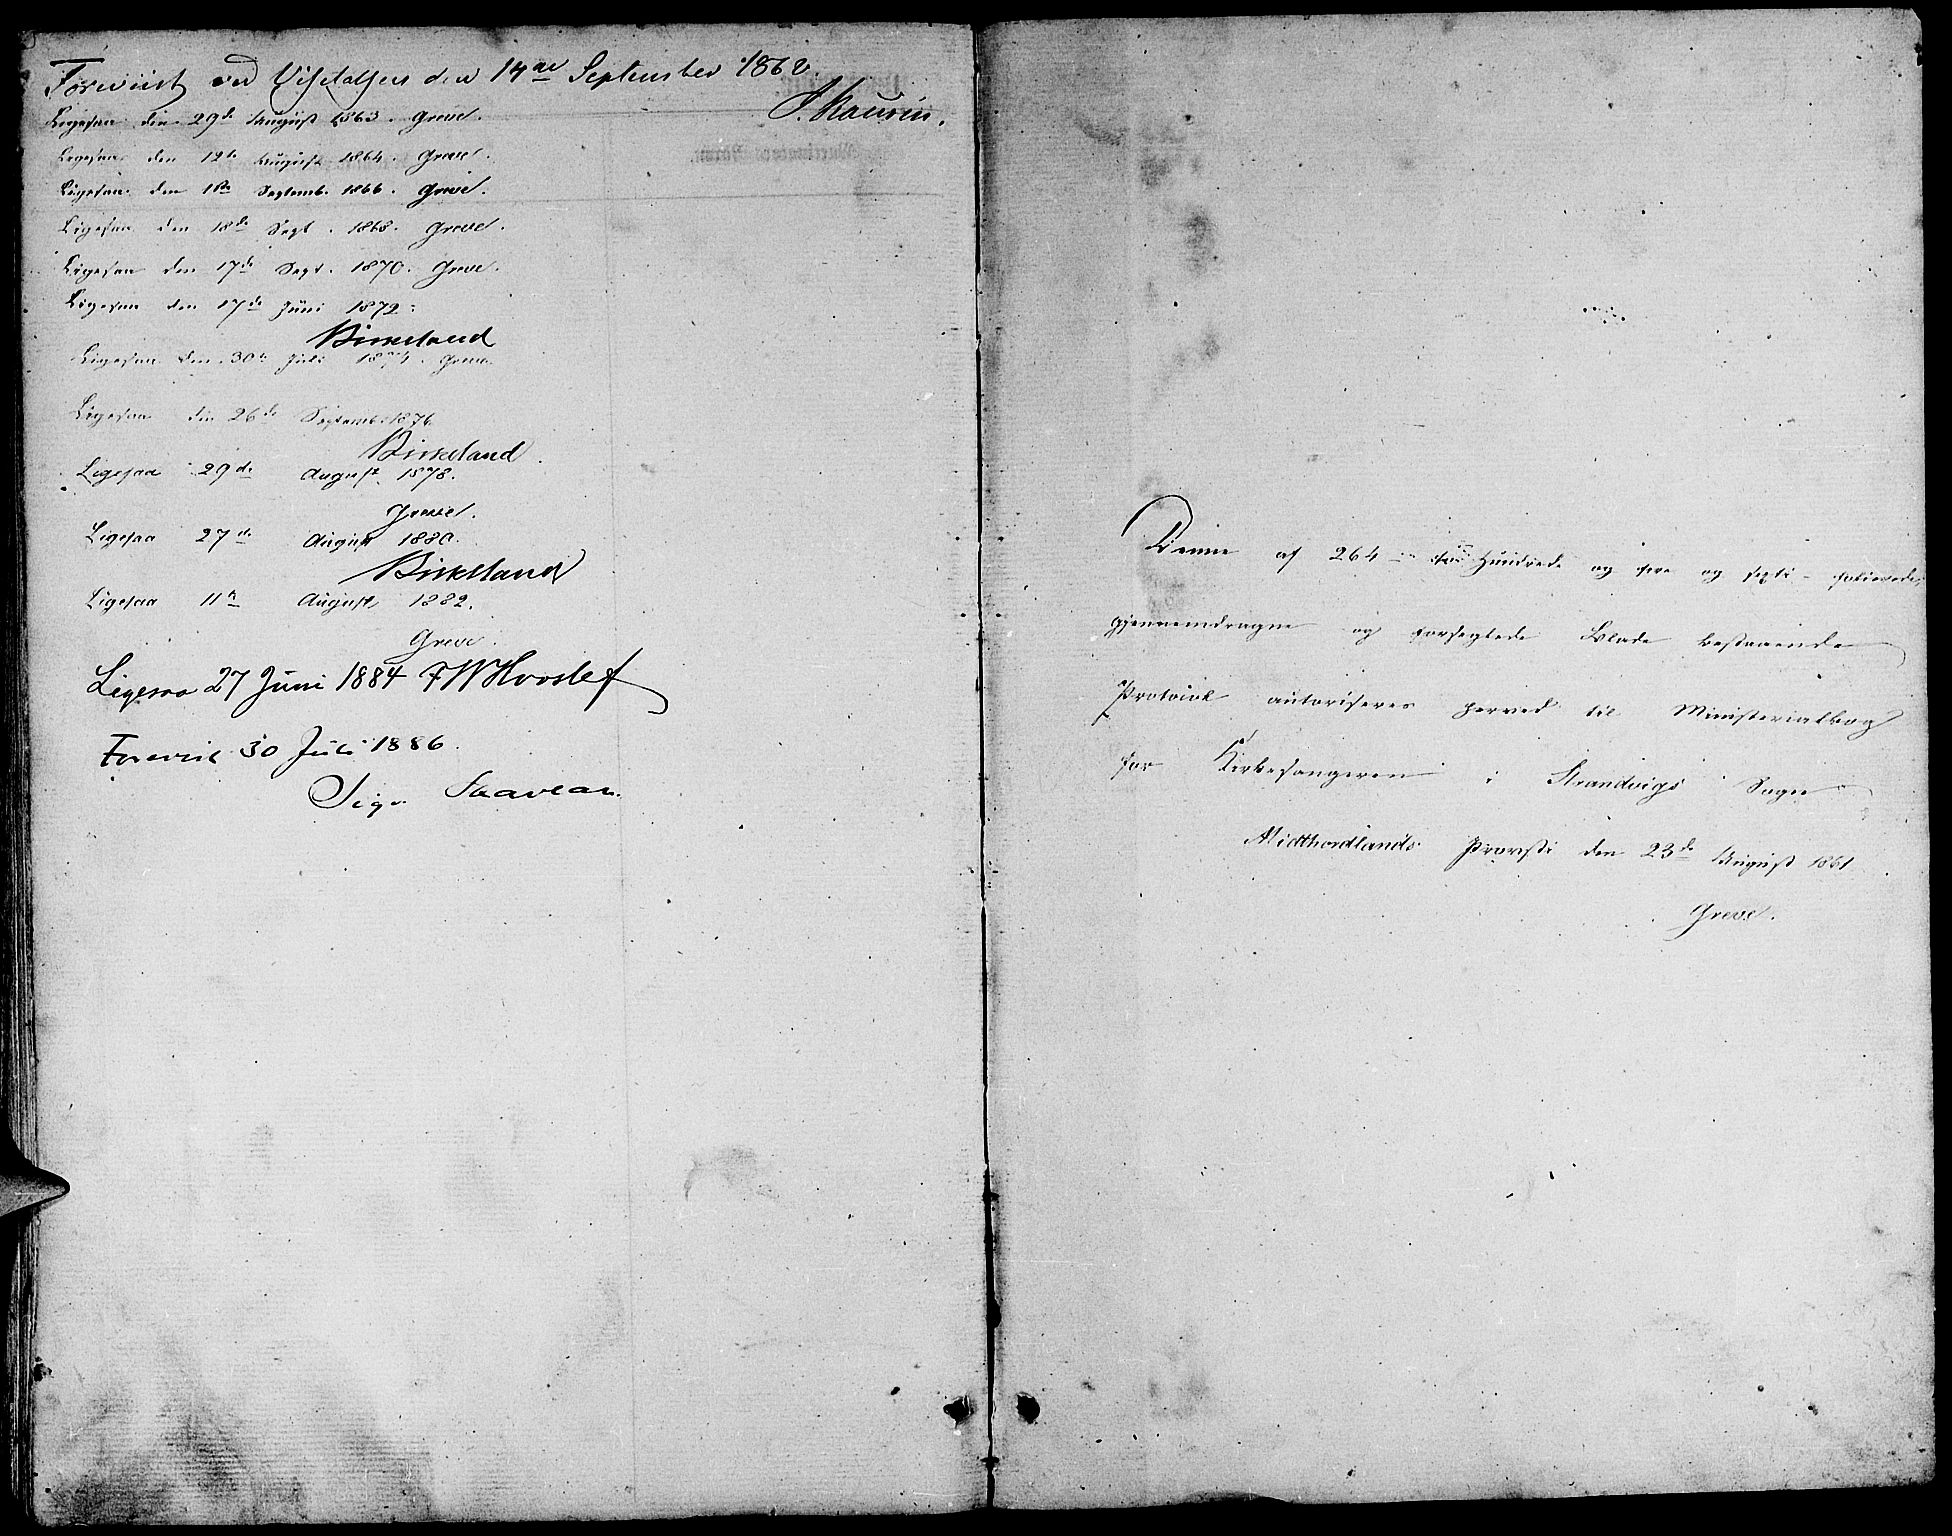 Foreviist ved Visitatsen den 14de September 1862
J. Kaurin.
Ligesaa den 29de August 1863. Greve.
Ligesaa den 12te August 1864. Greve.
Ligesaa den 1ste Septemb. 1866. Greve.
Ligesaa den 18de Sept. 1868. Greve.
Ligesaa den 17de Sept. 1870. Greve.
Ligesaa den 17de Juni 1872.
Birkeland
Ligesaa den 30te Juli 1874. Greve.
Ligesaa den 26de Septemb. 1876.
Birkeland.
Ligesaa 29de August 1878.
Greve.
Ligesaa 27de August 1880.
Birkeland
Ligesaa 11te August 1882.
Greve.
Ligesaa 27 Juni 1884 F W Hvoslef
Forevist 30 Juli 1886.
Sigv. Skavlan.
Denne af 264 – to Hundrede og fire og sexti – folierede,
gjennemdragne og forseglede Blade bestaaende
Protocol autoriseres herved til Ministerialbog
for Kirkesangeren i Strandvigs Sogn.
Midthordlands Provsti den 23de August 1861
Greve.